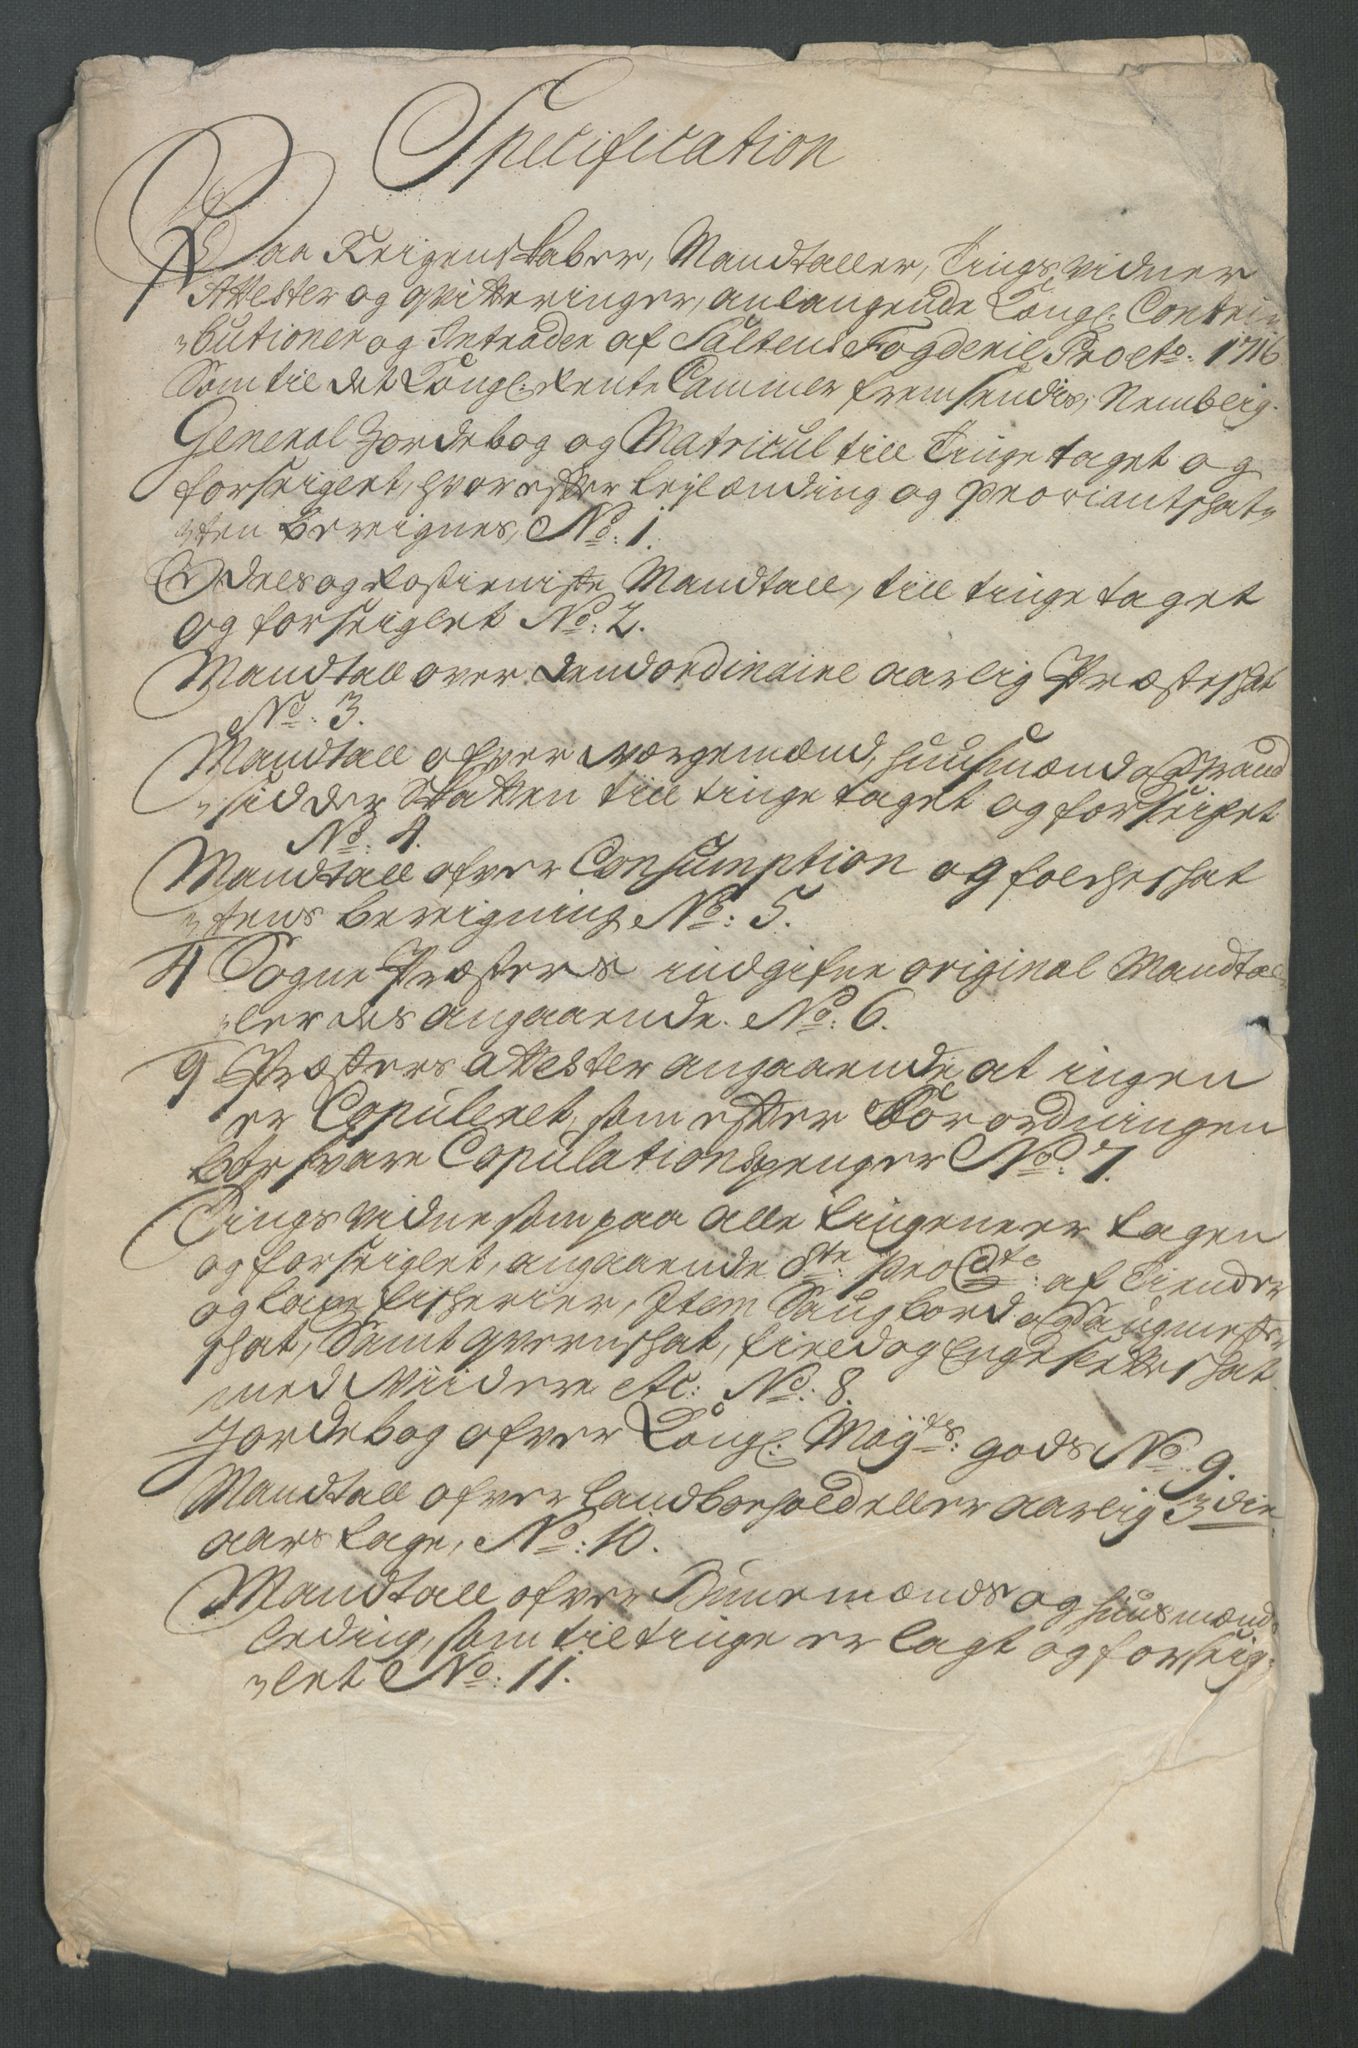 Specification
Paa Reigenskaber, Mandtaller, Tingsvidner
Attester og qvitteringer, anlangende Kongl: Contri
butioner og Intrader af Saltens Fogderie Pro Ao: 1716
Som til det Kongl: Rente Cammer fremsendis, Nemblig.
General Jordebog og Matricul till Tinge taget og
forseiglet, hvorefter leylænding og proviantskat
ten bereignes, No: 1.
Odels og Rostieniste Mandtall, till tinge taget
og forseiglet No: 2.
Mandtall over dend ordinaire aarlig Præsteskat
No: 3.
Mandtall ofver værgemænd, huusmænd og Strand
sidder skatten till tinge taget og forseiglet
No: 4.
Mandtall ofver Consumption og folcheskat
tens bereigning No: 5.
4 Sogne Præsters indgifne original Mandtal
ler des angaaende No: 6.
9 Præsters attester angaaende at ingen
er Copuleret, som efter Forordningen
bør svare Copulations penger No: 7.
Tingsvidne som paa alle tingene er tagen
og forseiglet, angaaende 8te pro Cto: af Tiender
og laxe fischerier, Item Saugbord og Saugmester
skat, Samt qvernskat, field og Engesletteskat
med Viidere etc: No: 8.
Jordebog ofver Kongl: May:ts gods No: 9.
Mandtall ofver landboehold eller aarlig 3die
aars tage, No: 10.
Mandtall ofver Bunemænds og huusmænds
leding, som til tinge er lagt og forseig
let No: 11.